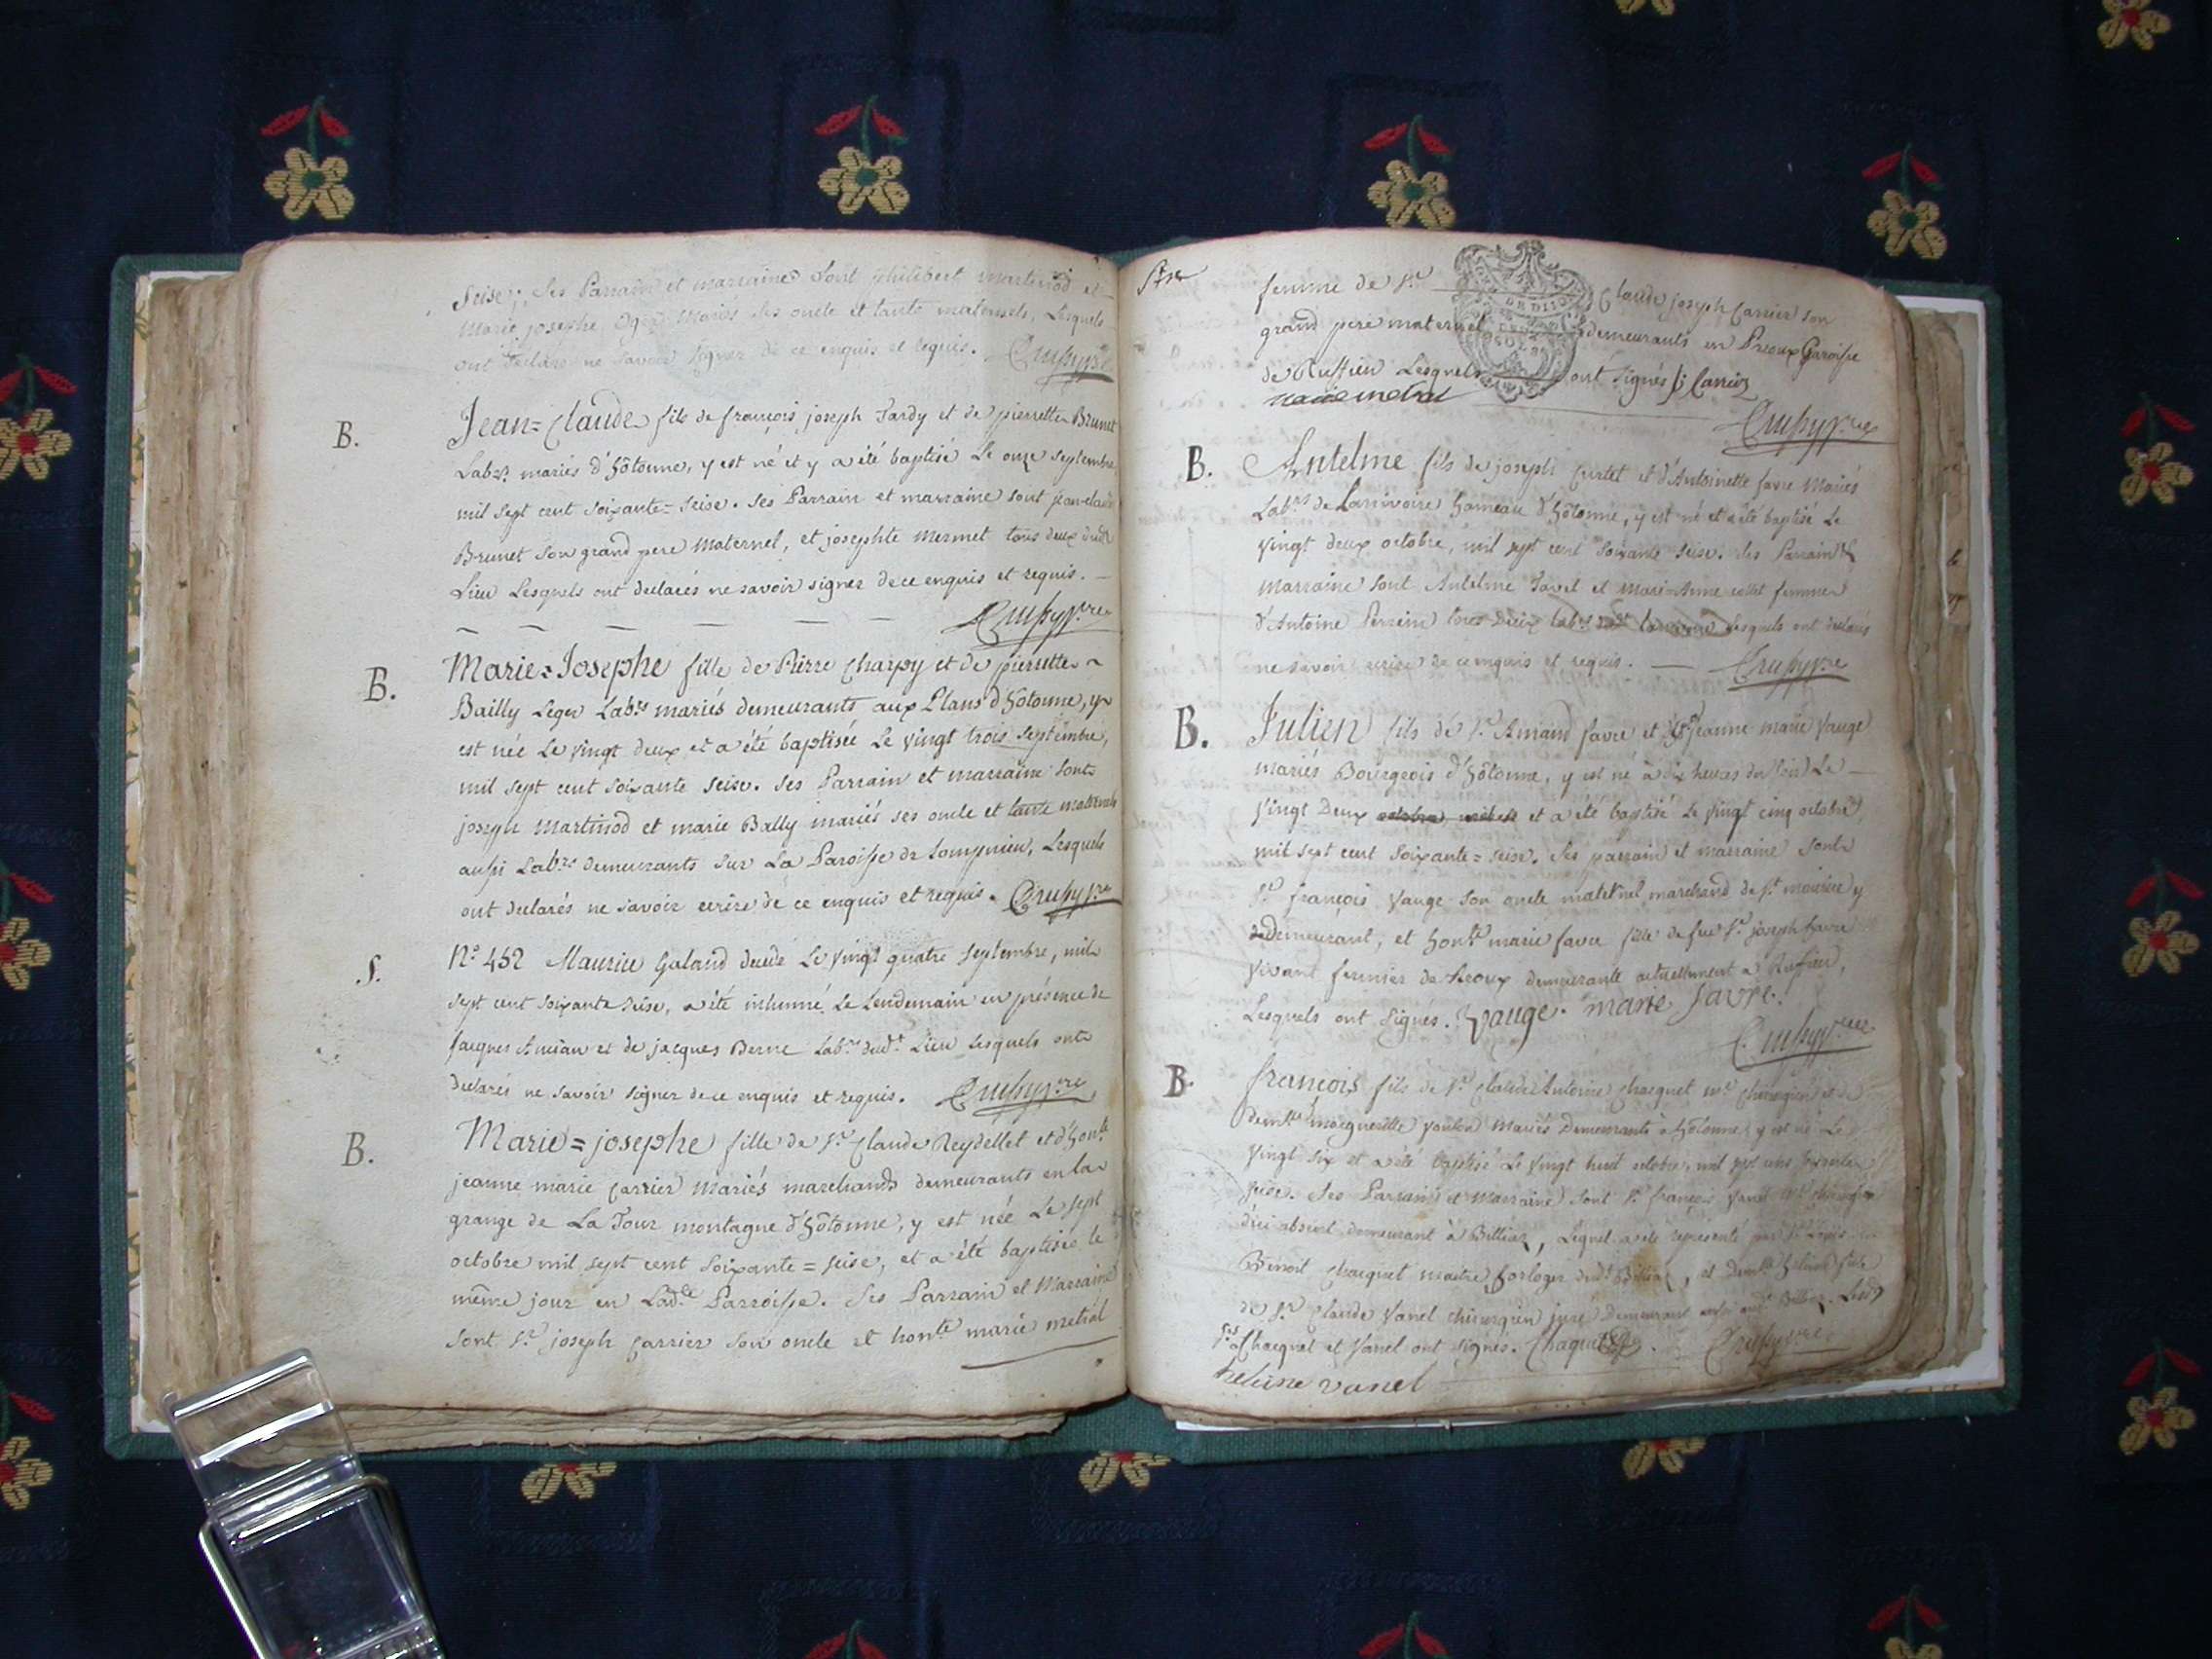 seise; Ses Parrain et marraine sont philibert martinod et
Marie josephe mariés ses oncle et tante maternels, Lesquels
ont declaré ne savoir signer de ce enquis et requis.
B. Jean=Claude fils de françois joseph Tardy et de pierrette Brunet
Labrs. mariés d'hôtonne, y est né et y a été baptisé Le onze septembre
mil sept cent soixante=seise. ses Parrain et marraine sont jean claude
Brunet son grand pere maternel, et josephte mermet tous deux dudt
Lieu Lesquels ont declarés ne savoir signer de ce enquis et requis.
B. Marie=Josephe fille de Pierre Charpy et de pierrette
Bailly Leger Labrs mariés demeurants aux Plans d'hôtonne, y
est née Le vingt deux et a été baptisée Le vingt trois septembre,
mil sept cent soixante seise. ses Parrain et marraine sont
joseph martinod et marie Bally mariés ses oncle et tante maternels
aussi Labrs demeurants sur La Paroisse de Sompnieu, Lesquels
ont declarés ne savoir ecrire de ce enquis et requis.
S. No 452 Maurice Galand decedé Le vingt quatre septembre, mil
sept cent soixante seise, a été inhumé Le Lendemain en présence de
jacques et de jacques Berne Labrs dudt Lieu Lesquels ont
declarés ne savoir signer de ce enquis et requis.
B. Marie=josephe fille de Sr Claude Reydellet et d'honte
jeanne marie Carrier mariés marchands demeurants en la
grange de La Tour montagne d'hôtonne, y est née Le sept
octobre mil sept cent soixante=seise, et a été baptisée le
même jour en Ladte Parroisse. Ses Parrain et Marraine
sont Sr joseph Carrier son oncle et honte marie metral
femme de Sr Claude joseph Carrier son
grand pere maternel demeurants en Proux Paroisse
de Ruffieu Lesquels ont signés j Carrier
marie metral
B. Antelme fils de joseph Curtet et d'Antoinette favre Mariés
Labrs de Larnivoire hameau d'hôtonne, y est né et a été baptisé Le
vingt deux octobre, mil sept cent soixante seise. ses Parrain &
marraine sont Antelme Tavel et Marie-Anne collet femme
d'Antoine Perrin tous deux labrs Lesquels ont declarés
ne savoir ecrire de ce enquis et requis.
B. Julien fils de Sr Amand favre et jeanne marie vauge
mariés Bourgeois d'hôtonne, y est né à dix heures du soir Le
vingt Deux et a été baptisé Le vingt cinq octobre
mil sept cent soixante=seise. Ses parrain et marraine sont
Sr françois vauge son oncle maternel marchand de St maurice y
demeurant, et honte marie favre fille de feu Sr joseph favre
vivant fermier de Proux demeurante actuellement a Ruffieu,
Lesquels ont signés. vauge. marie favre.
B. françois fils de Sr Claude Antoine Chacquet me chirurgien et de
demlle marguerite mariés Demeurants à hôtonne y est né Le
vingt six et a été baptisé Le vingt huit octobre, mil sept cens soixante
seise. Ses Parrain et Marraine sont Sr françois vanel me chirurgien
d'ici absent demeurant à Billiaz, Lequel a été représenté par Sr Louis
Benoit Chacquet maitre horloger dudt Billiaz, et demlle helene fille
de Sr Claude Vanel chirurgien juré demeurant aussi audt Billiaz. Lesdts
Chacquet et Vanel ont signés. Chaquet
helene vanel